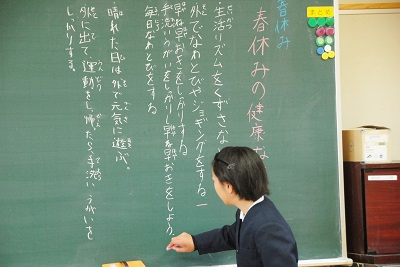 まとめ
春休み
春休みの健康な
・生活リズムをくずさな
外でなわとびやジョギングをする
早ね早おきをしっかりする
手洗いうがいをしっかりし早ね早おきをしよう。
毎日なわとびをする
・晴れた日は外で元気に遊ぶ。
外に出て運動をし、帰たら手洗いうがいを
しっかりする。